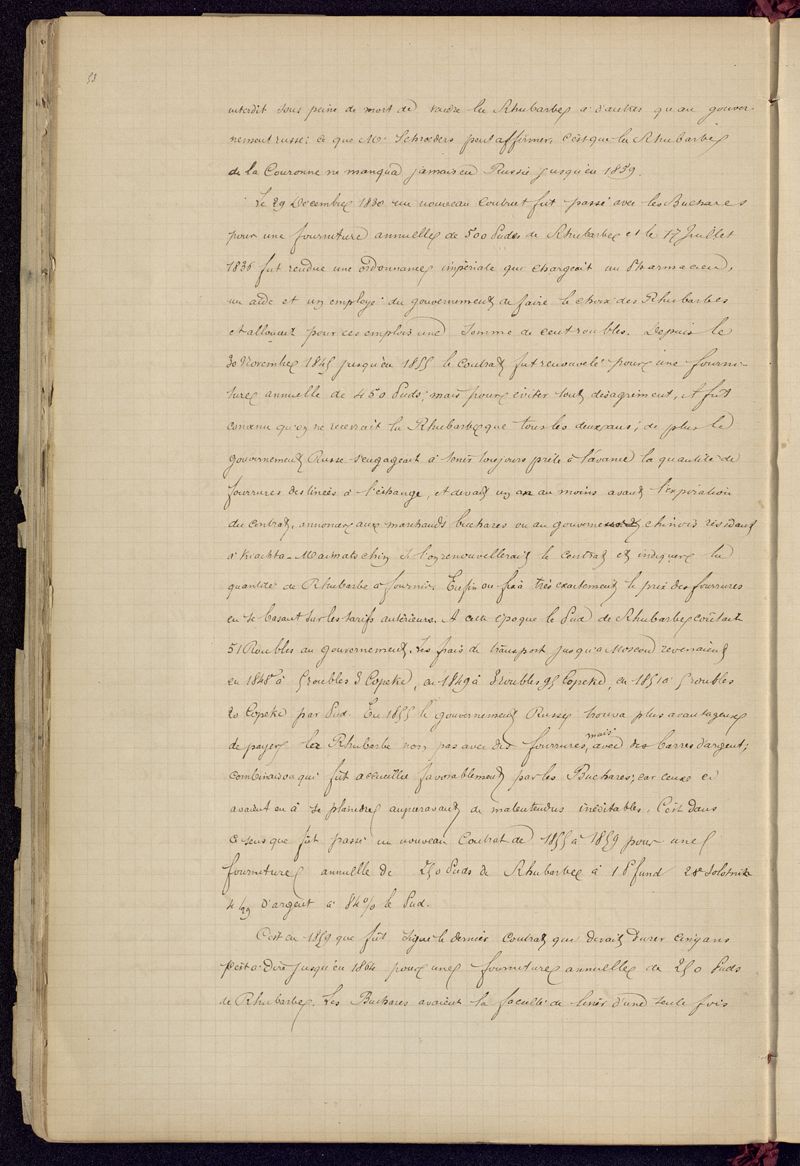 53
interdit sous peine de mort de vendre la Rhubarbe à d'autres qu'au gouver-
nement russe; ce que Mr Schroeders peut affirmer, c'est que la Rhubarbe
de la Couronne ne manqua jamais en Russie jusqu'en 1859.
Le 29 Decembre 1830 un nouveau Contrat fut passé avec les Buchares
pour une fourniture annuelle de 500 Puds de Rhubarbe et le 17 Juillet
1836 fut rendue une ordonnance impériale qui chargeait un Pharmacien,
un aide et un employé du gouvernement de faire le choix des Rhubarbes
et allouent pour ces emplois une Somme de cent roubles. Depuis le
30 Novembre 1845 jusqu'en 1855 le contrat fut renouvelé pour une fourni-
ture annuelle de 450 Puds; mais pour éviter tout désagrément, il fut
convenu qu'on ne recevrait la Rhubarbe que tous les deux ans; de plus le
gouvernement Russe s'engageait à tenir toujours prête à l'avance la quantité de
fourrures destinées à l'échange, et devait un an au moins avant l'expiration
du contrat, annoncer aux marchands buchares ou au gouvernement chinois résidant
à Kiachta-Maimatschin si l'on renouvellerait le contrat et indiquer la
quantité de Rhubarbe à fournir. Enfin on fixa très exactement le prix des fourrures
en se basant sur les tarifs antérieurs. A cette époque le Pud de Rhubarbe coûtait
51 Roubles au gouvernement. Les frais de transport jusqu'à Moscou revenaient
en 1848 à 5 roubles 3 Copeke, en 1849 à 3 roubles 95 Copeke, en 1851 à 5 roubles
20 Copeke par Pud. En 1855 le gouvernement Russe trouva plus avantageux
de payer la Rhubarbe non pas avec des fourrures, mais avec des barres d'argent;
combinaison qui fût accueillie favorablement par les Buchares; car ceux ci
avaient eu à se plaindre auparavant de malentendus inévitables. C'est dans
ce sens que fût passé un nouveau Contrat de 1855 à 1859 pour une
fourniture annuelle de 250 Puds de Rhubarbe à 1 Pfund 28 Solotnik
d'argent à 84% le Pud.
C'est en 1859 que fût signé le dernier Contrat qui devait durer cinq ans
c'est à dire jusqu'en 1864 pour une fourniture annuelle de 250 Puds
de Rhubarbe. Les Buchares avaient la faculté de livrer d'une seule fois